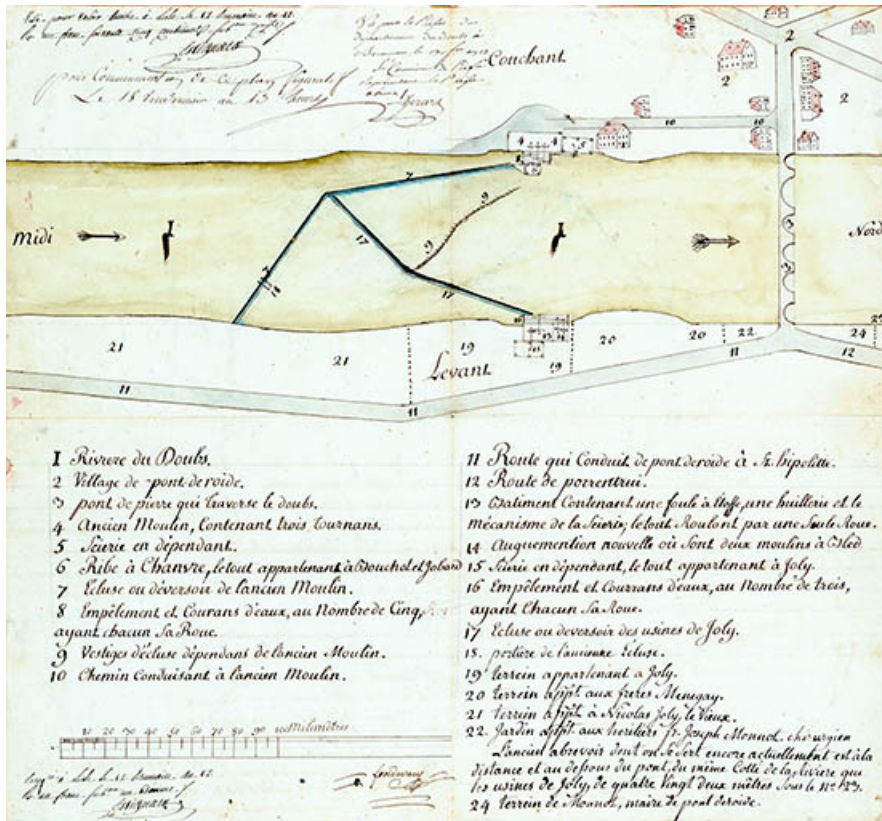 pour
de ce plan figuratif
Le 18
an 13
Couchant
2
2
2
10
10
4
4
5
7
9
9
3
3
Midi
I
I
Nord
17
17
18
21
21
19
19
20
20
22
24
Levant
11
11
11
12
I Rivière du Doubs.
2 Village de pont de roide.
3 pont de pierre qui traverse le doubs.
4 Ancien Moulin, Contenant trois tournans.
5 Scierie en dépendant.
6 Ribe à Chanvre, le tout appartenant à Bouchot et Jobard
7 Ecluse ou déversoir de lancien Moulin.
8 Empêlement et Courans d'eaux, au Nombre de Cinq,
ayant chacun Sa Roue.
9 Vestiges d'écluse dépendans de lancien Moulin.
10 Chemin Conduisant à lancien Moulin.
11 Route qui Conduit de pont de roide à St. hipolitte.
12 Route de porrentrui.
13 Batiment Contenant une foule à étoffe, une huillerie et le
mécanisme de la Scierie; le tout Roulant par une Seule Roue.
14 Auguemention nouvelle où Sont deux moulins à Bled.
15 Scierie en dépendant, le tout appartenant à Joly.
16 Empêlement et Courrans d'eaux, au Nombre de trois,
ayant Chacun Sa Roue.
17 Ecluse ou deversoir des usines de Joly.
18. portière de l'ancienne Ecluse.
19 terrein appartenant a Joly.
20 terrein appt. aux freres Menegay.
21 terrein appt. à Nicolas Joly, le Vieux.
22 Jardin appt. aux heritiers fr. Joseph Monnot, chirurgien
L'ancien abrevoir dont on se Sert encore actuellement est à la
distance et au dessous du pont, du même Cotté de la Rivière que
les usines de Joly, de quatre Vingt deux mètres Sous le No. 23.
24 terrein de Monnot, maire de pont de roide.
10 20 30 40 50 60 70 80 90 100 Milimètres